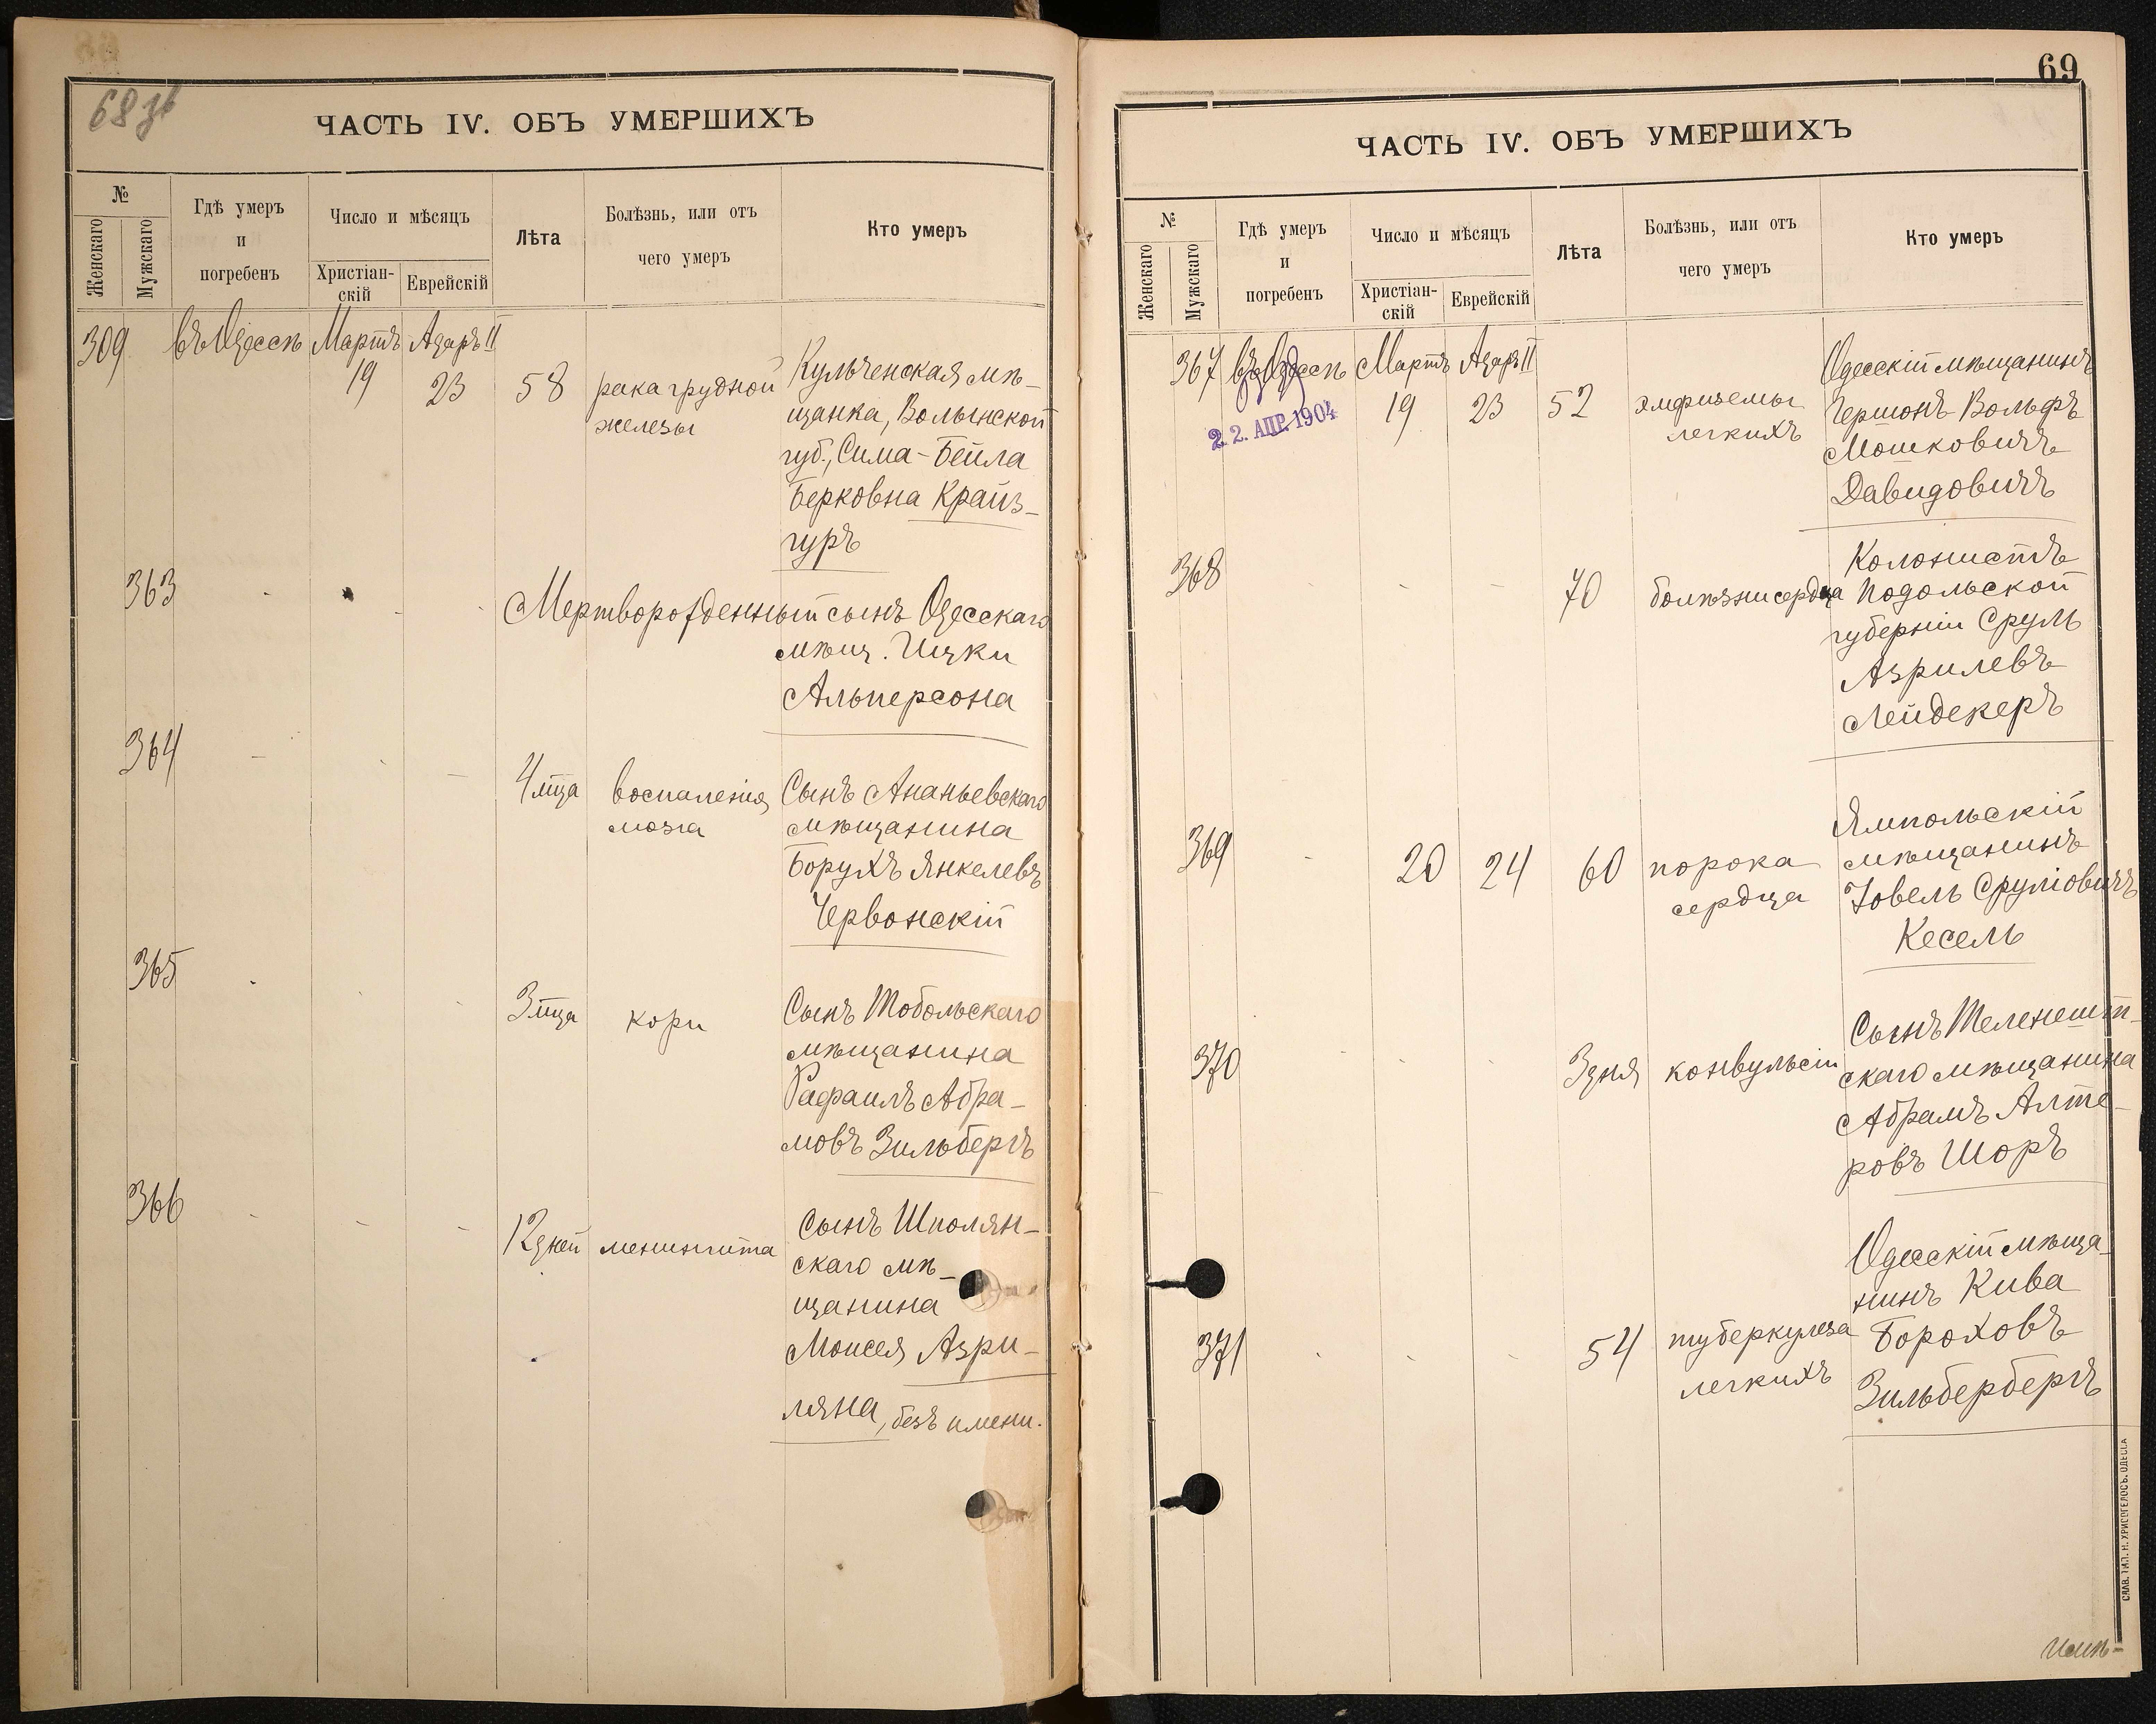 68 зв
ЧАСТЬ IV. ОБЪ УМЕРШИХЪ
№
Женскаго
Мужскаго
Гдѣ умеръ
и
погребенъ
Число и мѣсяцъ
Христіан-
скій
Еврейскій
Лѣта
Болѣзнь, или отъ
чего умеръ
Кто умеръ
309 въ Одессѣ Мартъ Адаръ II
19 23 58 рака грудной
железы
Кульченская мѣ-
щанка, Волынской
губ., Сима-Бейла
Берковна Крайз-
гуръ
363 Мертворожденный сынъ Одесскаго
мѣщ. Ицки
Альперсона
364
4 мца воспаленія
мозга
Сынъ Ананьевскаго
мѣщанина
Борухъ Янкелевъ
Червонскій
365
3 мца кори
Сынъ Тобольскаго
мѣщанина
Рафаилъ Абра-
мовъ Зильбергъ
366
12 дней менингита
Сынъ Шполян-
скаго мѣ-
щанина
Моисея Азри-
ляна, безъ имени.
69
ЧАСТЬ IV. ОБЪ УМЕРШИХЪ
№
Женскаго
Мужскаго
Гдѣ умеръ
и
погребенъ
Число и мѣсяцъ
Христіан-
скій
Еврейскій
Лѣта
Болѣзнь, или отъ
чего умеръ
Кто умеръ
367 въ Одессѣ Мартъ Адаръ II
22. АПР. 1904
19 23 52 эмфиземы
легкихъ
Одесскій мѣщанинъ
Гершонъ Вольфъ
Мошковичъ
Давидовичъ
368
70 болѣзни сердца
Колонистъ
Подольской
губерніи Сруль
Азрилевъ
Лейдекеръ
369
20 24 60 порока
сердца
Ямпольскій
мѣщанинъ
Іовель Сруліовичъ
Кесель
370
3 дня конвульсіи
Сынъ Теленешт-
скаго мѣщанина
Абрамъ Алте-
ровъ Шоръ
371
54 туберкулеза
легкихъ
Одесскій мѣща-
нинъ Кива
Бороховъ
Зильбербергъ
СЛАВ. ТИП. Н. ХРИСОГЕЛОСЪ. ОДЕССА